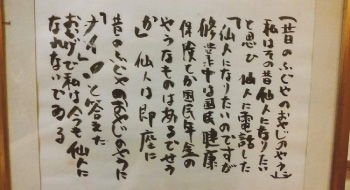 「昔のふじやのおやじのやう」
私はその昔仙人になりたい
と思ひ仙人に電話した
「仙人になりたいのですが
修業中は国民健康
保険とか国民年金の
やうなものはあるでせう
か」仙人は即座に
昔のふじやのおやじのやうに
と答えた
おかげで私は今も仙人に
なれないでゐる